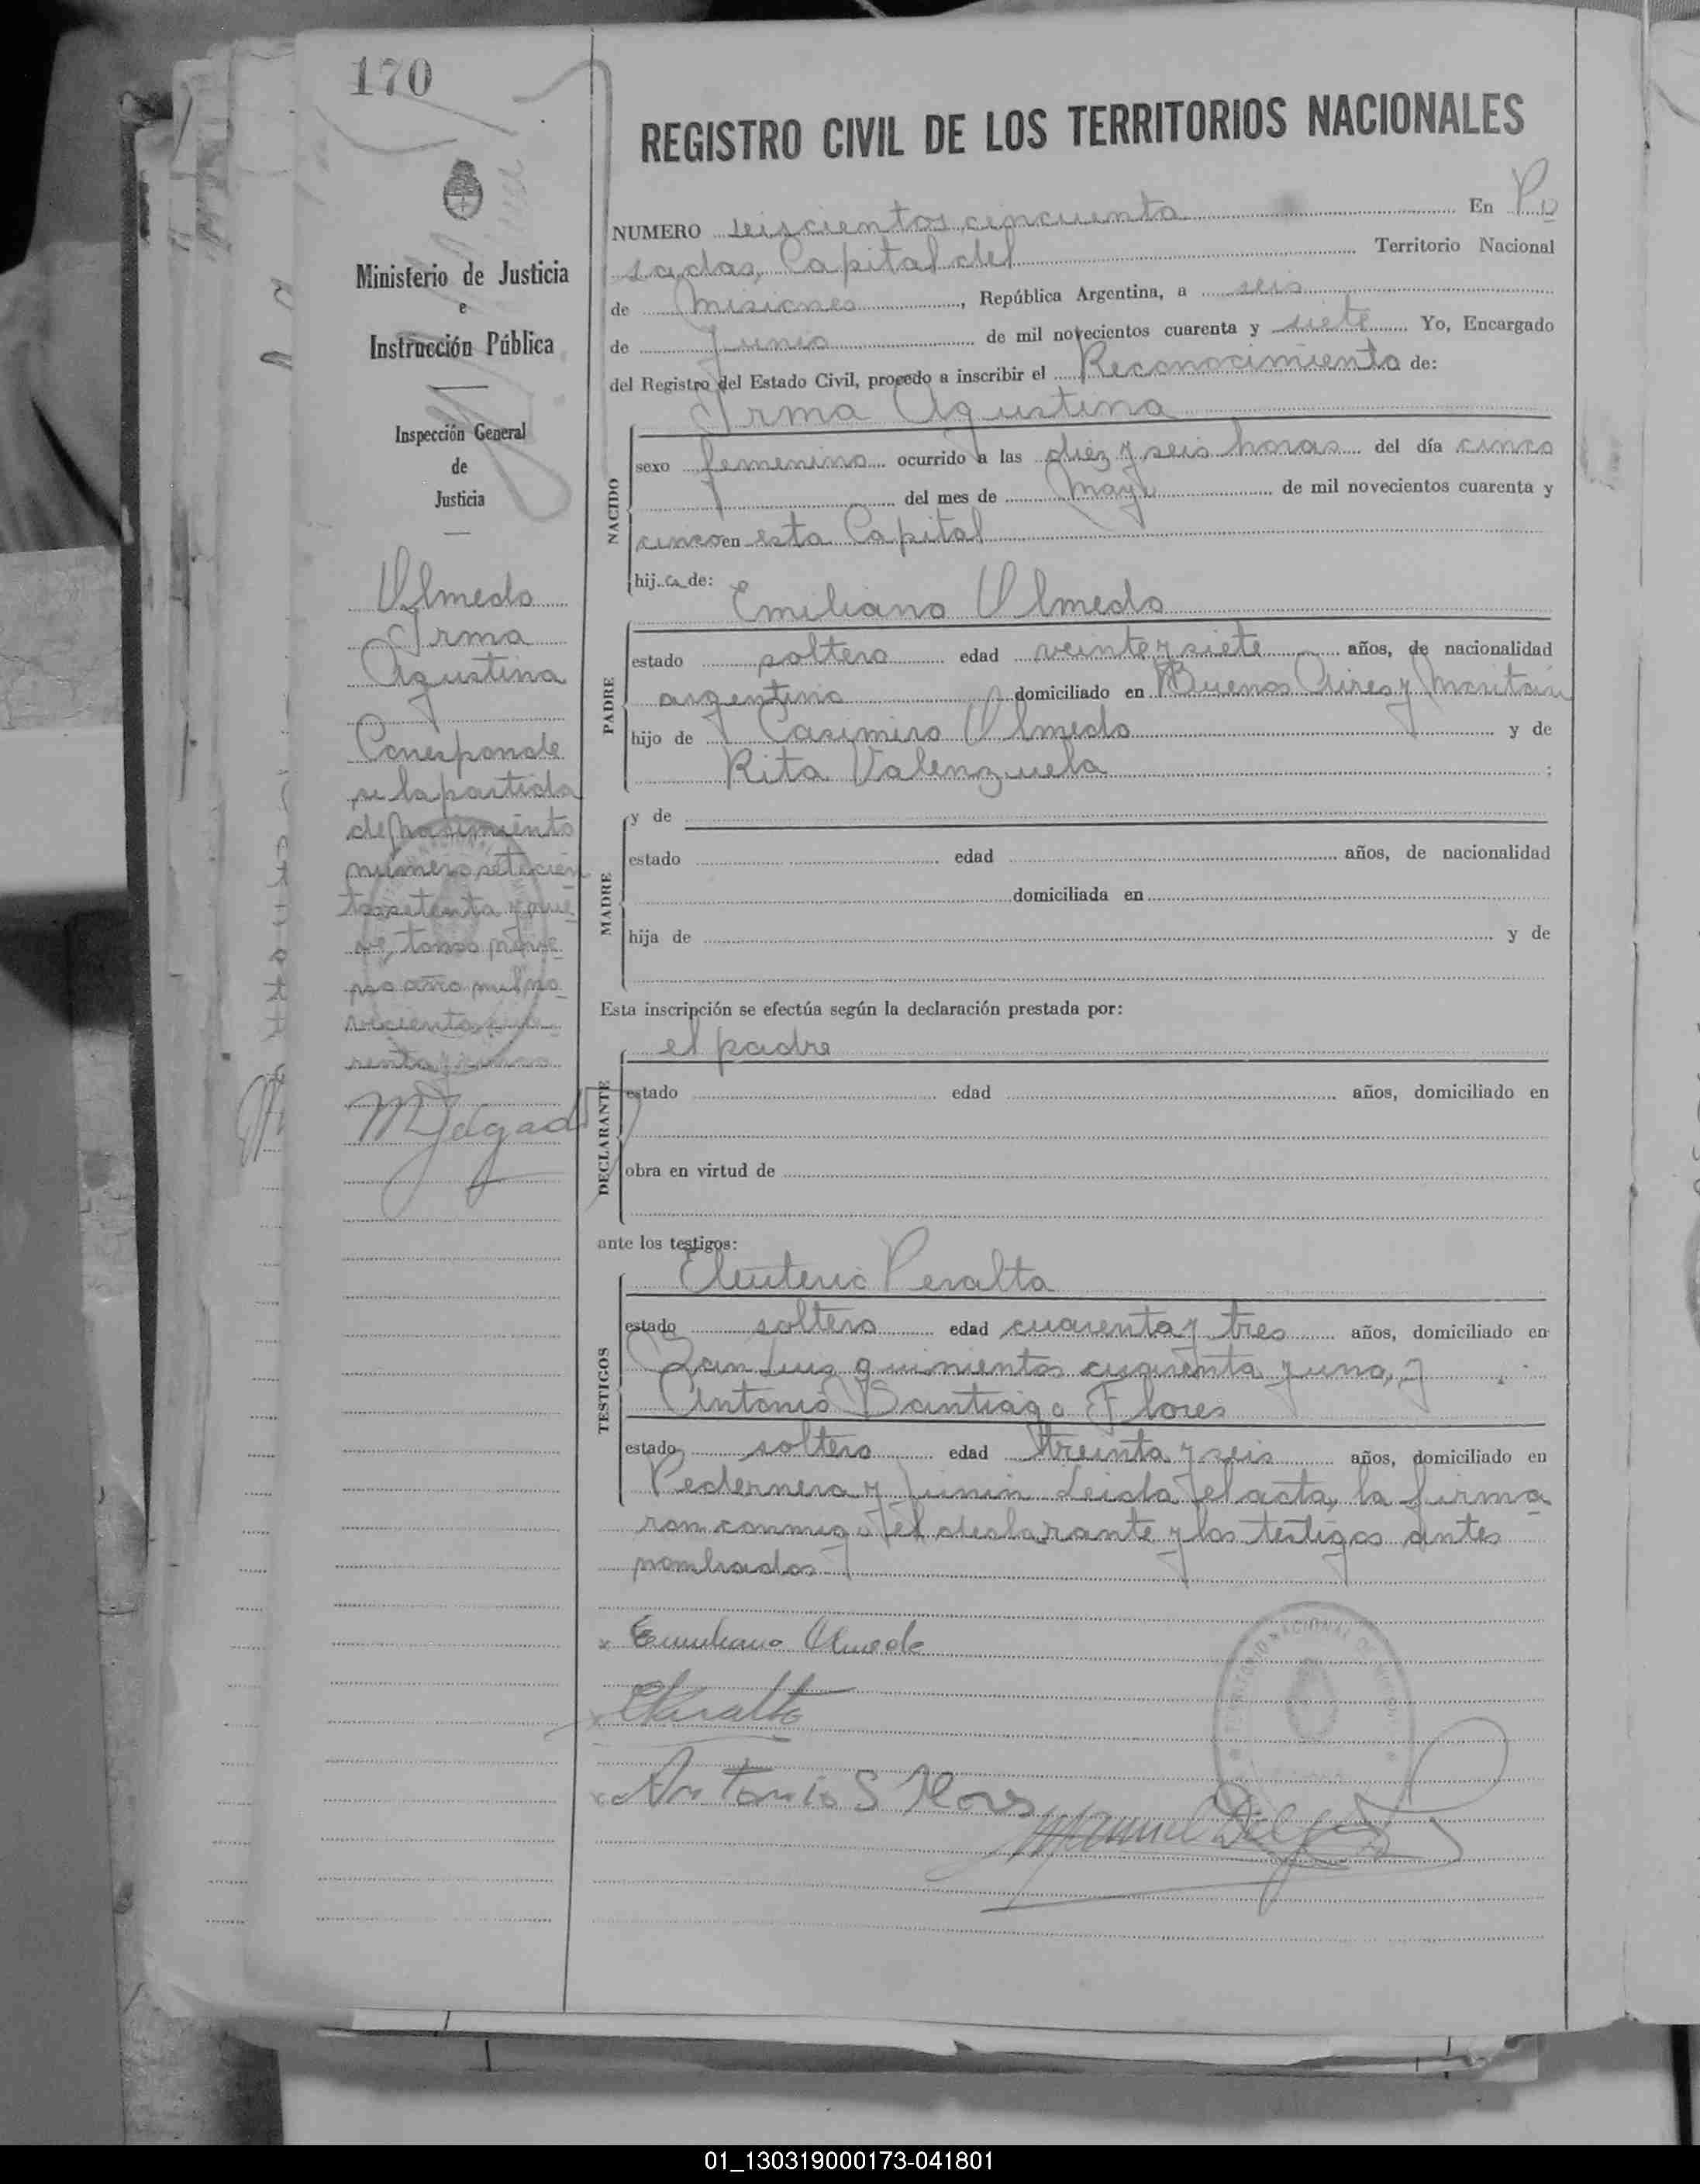 170
REGISTRO CIVIL DE LOS TERRITORIOS NACIONALES
Ministerio de Justicia
e
Instrucción Pública
Inspección General
de
Justicia
Olmedo
Irma
Agustina
Corresponde
a la partida
de nacimiento
número setecien
tos setenta y nue
ve, tomo prime
ro año mil no
vecientos cua
renta y cinco
M Delgado
NUMERO seiscientos cincuenta En Po
sadas, Capital del Territorio Nacional
de Misiones, República Argentina, a seis
de Junio de mil novecientos cuarenta y siete Yo, Encargado
del Registro del Estado Civil, procedo a inscribir el Reconocimiento de:
Irma Agustina
NACIDO
sexo femenino ocurrido a las diez y seis horas del día cinco
del mes de Mayo de mil novecientos cuarenta y
cinco en esta Capital
hija de:
Emiliano Olmedo
PADRE
estado soltero edad veinte y siete años, de nacionalidad
argentino domiciliado en Buenos Aires y
hijo de Casimiro Olmedo y de
Rita Valenzuela ;
MADRE
y de
estado edad años, de nacionalidad
domiciliada en
hija de y de
Esta inscripción se efectúa según la declaración prestada por:
el padre
DECLARANTE
estado edad años, domiciliado en
obra en virtud de
ante los testigos:
Eleuterio Peralta
TESTIGOS
estado soltero edad cuarenta y tres años, domiciliado en
San Luis quinientos cuarenta y uno, y
Antonio Santiago Flores
estado soltero edad treinta y seis años, domiciliado en
Pedernera y Junin Leida el acta, la firma
ron conmigo el declarante y los testigos antes
nombrados
x Emiliano Olmedo
x EPeralta
x Antonio S Flores
Manuel Delgado
01_130319000173-041801